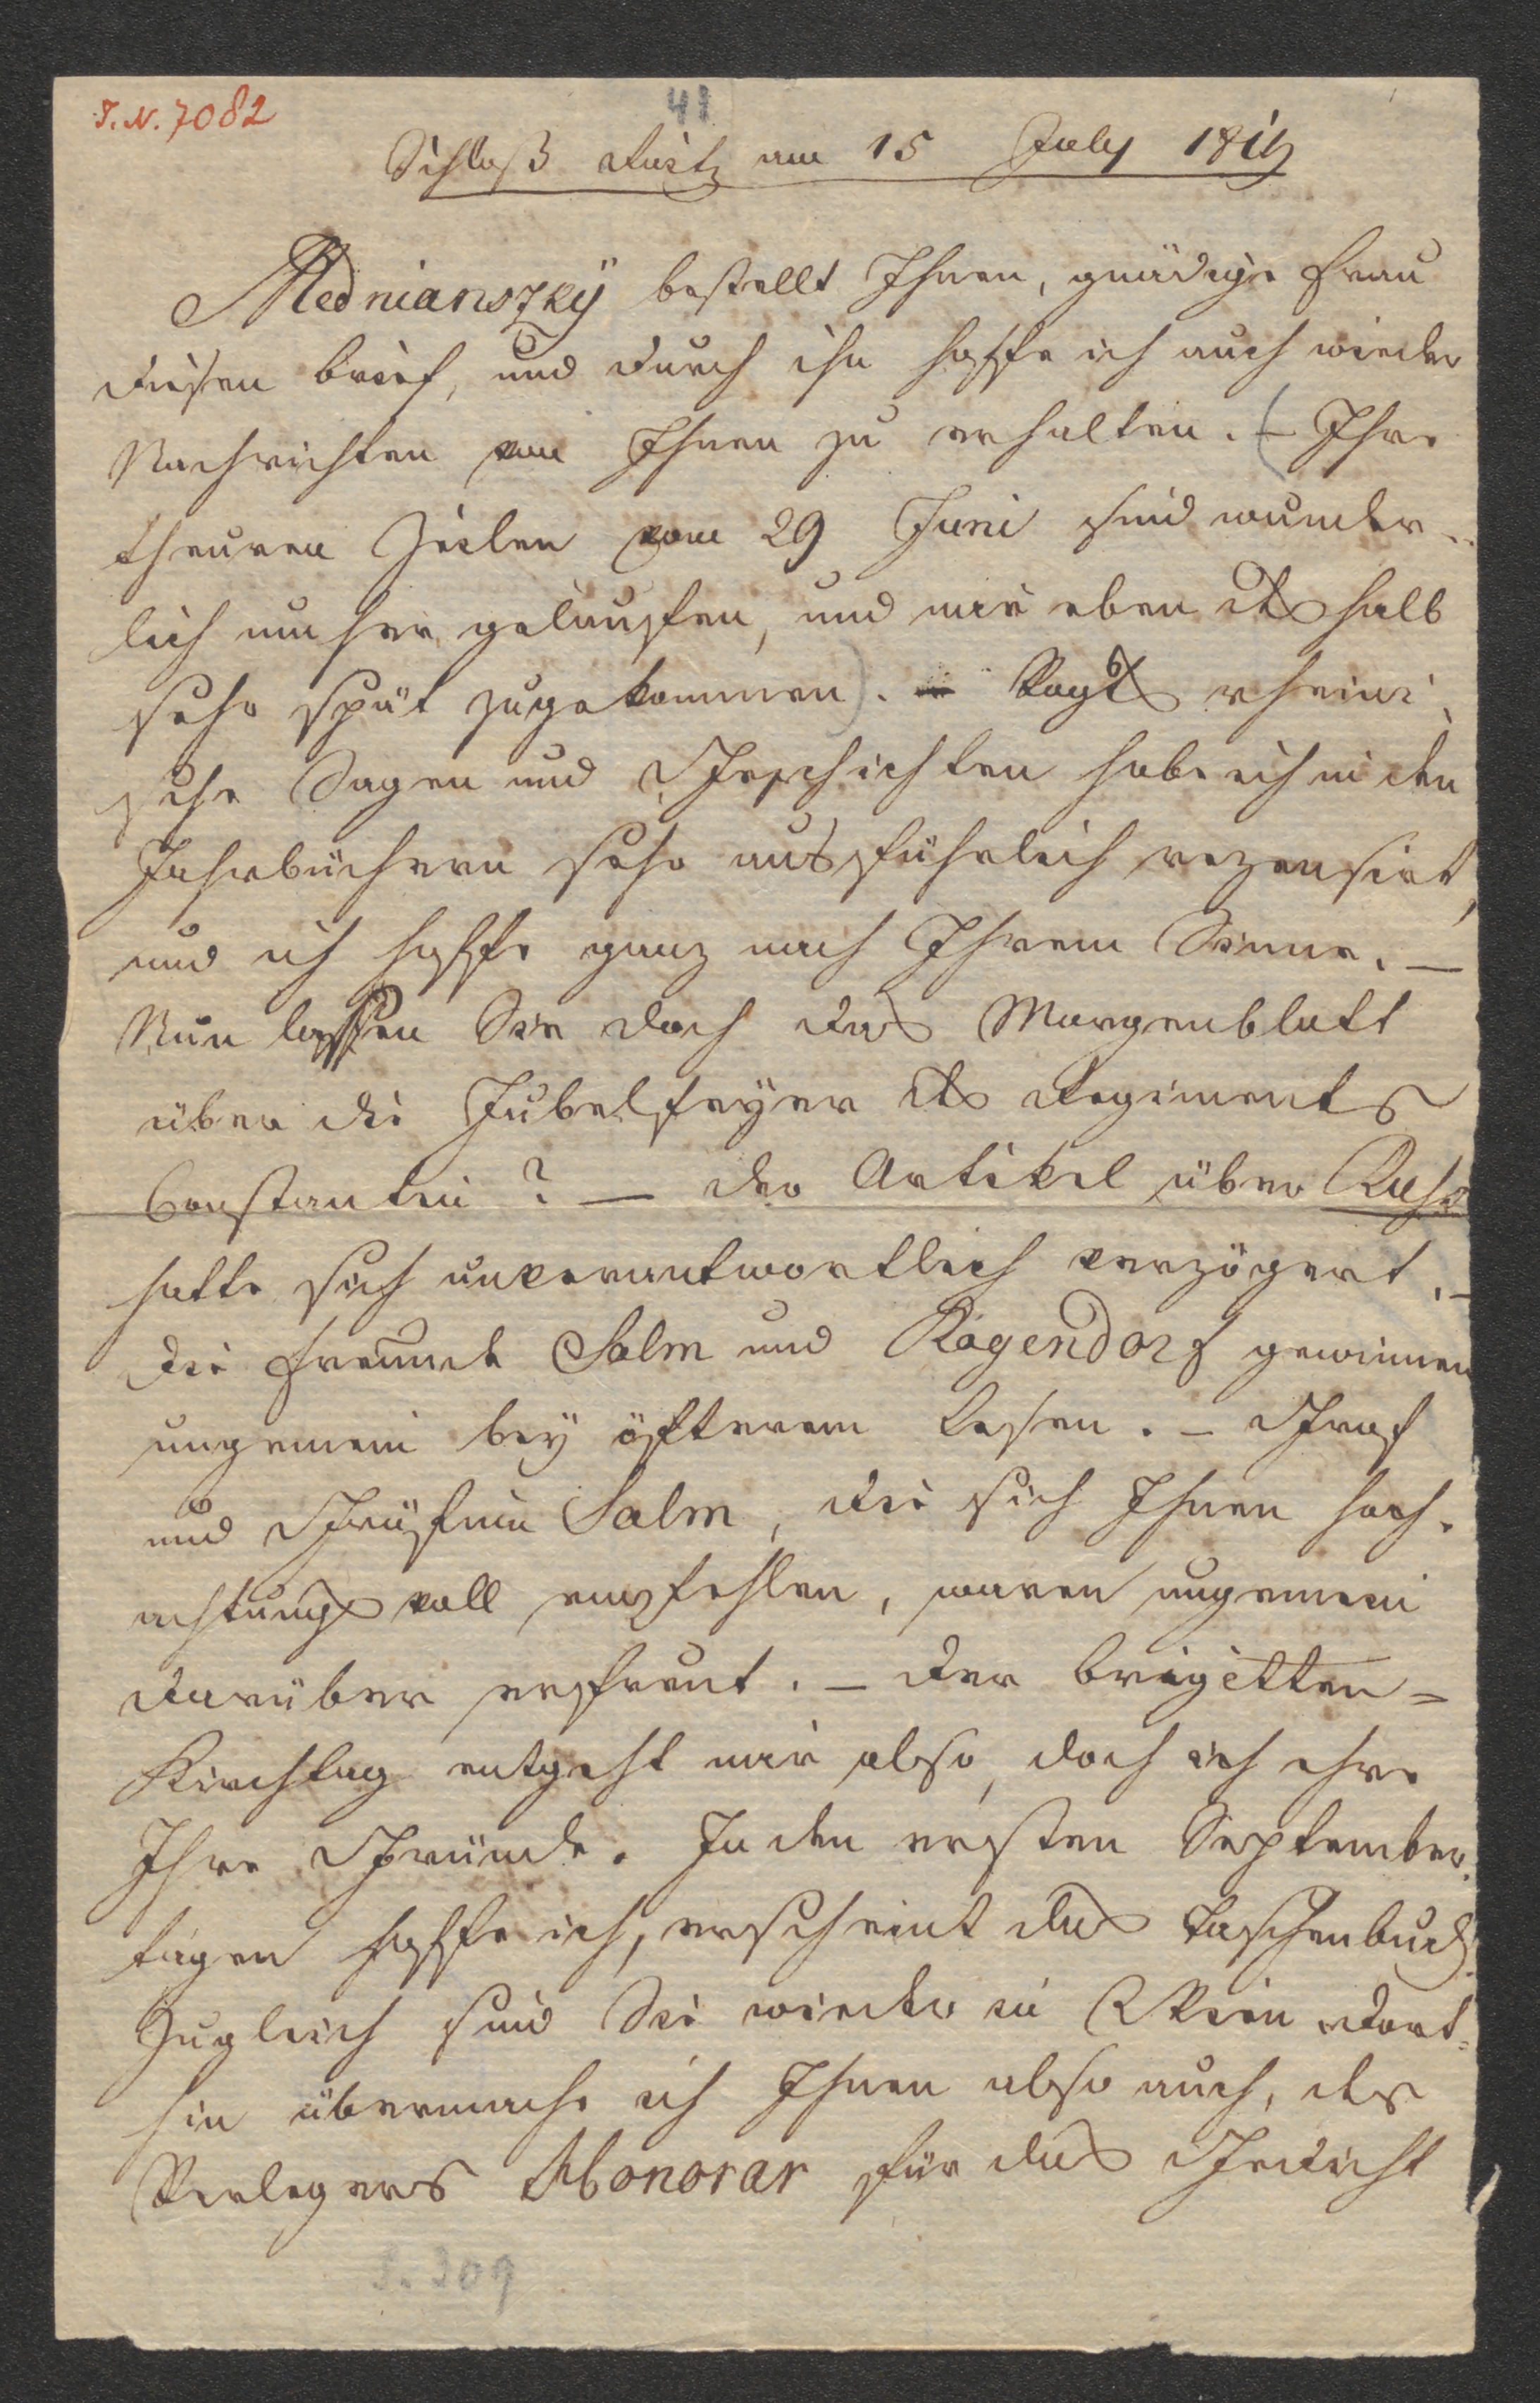 I. N. 7082
41
Schloß Raitz am 15 July 1819
Mednianszkÿ bestellt Ihnen, gnädige Frau
diesen Brief, und durch ihn hoffe ich auch wieder
Nachrichten von Ihnen zu erhalten. (– Ihre
theuren Zeilen vom 29 Juni sind wunder-
lich umher gelaufen, und mir eben deshalb
sehr spät zugekommen). – Vogts rheini-
sche Sagen und Geschichten habe ich in den
Jahrbüchern sehr ausführlich rezensirt,
und ich hoffe ganz nach Ihrem Sinne. –
Nun lassen Sie doch das Morgenblatt
über die Jubelfeyer des Regiments
Constantin? – Der Artikel über Ruhe
hatte sich unverantwortlich verzögert. –
Die Freunde Salm und Rogendorf gewinnen
ungemein beÿ öfterem Lesen. – Graf
und Gräfinn Salm, die sich Ihnen hoch-
achtungsvoll empfehlen, waren ungemein
darüber erfreut. – Der Brigitten=
Kirchtag entgeht mir also, doch ich ehre
Ihre Gründe. In den ersten September-
tagen hoffe ich, erscheint das Taschenbuch.
Zugleich sind Sie wieder in Wien dort=
hin übermache ich Ihnen also auch, des
Verlegers Honorar für das Gedicht
S. 309